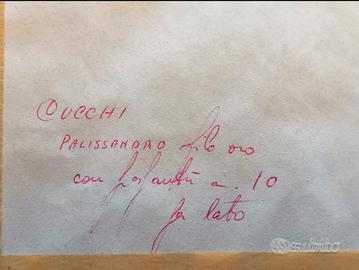 CUCCHI
PALISSANDRO filo oro
con n. 10
lato
subito